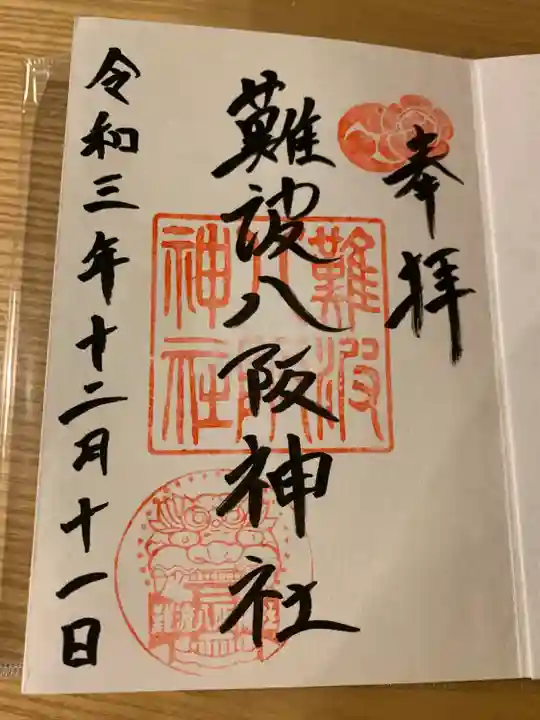 奉拝
難波八阪神社
令和三年十二月十一日
難波八阪神社